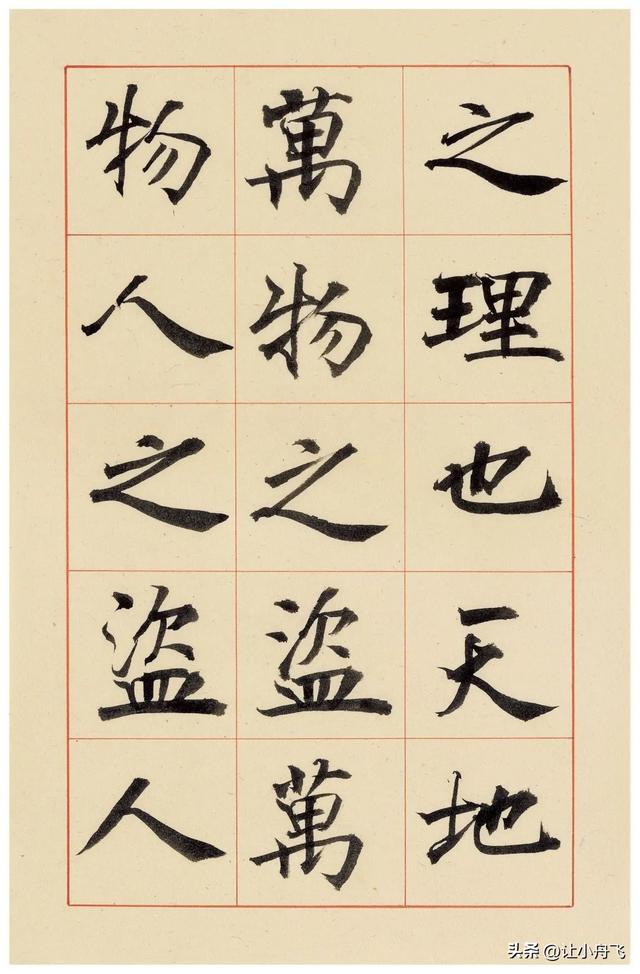 之理也天地
萬物之盜萬
物人之盜人
头条 @让小舟飞